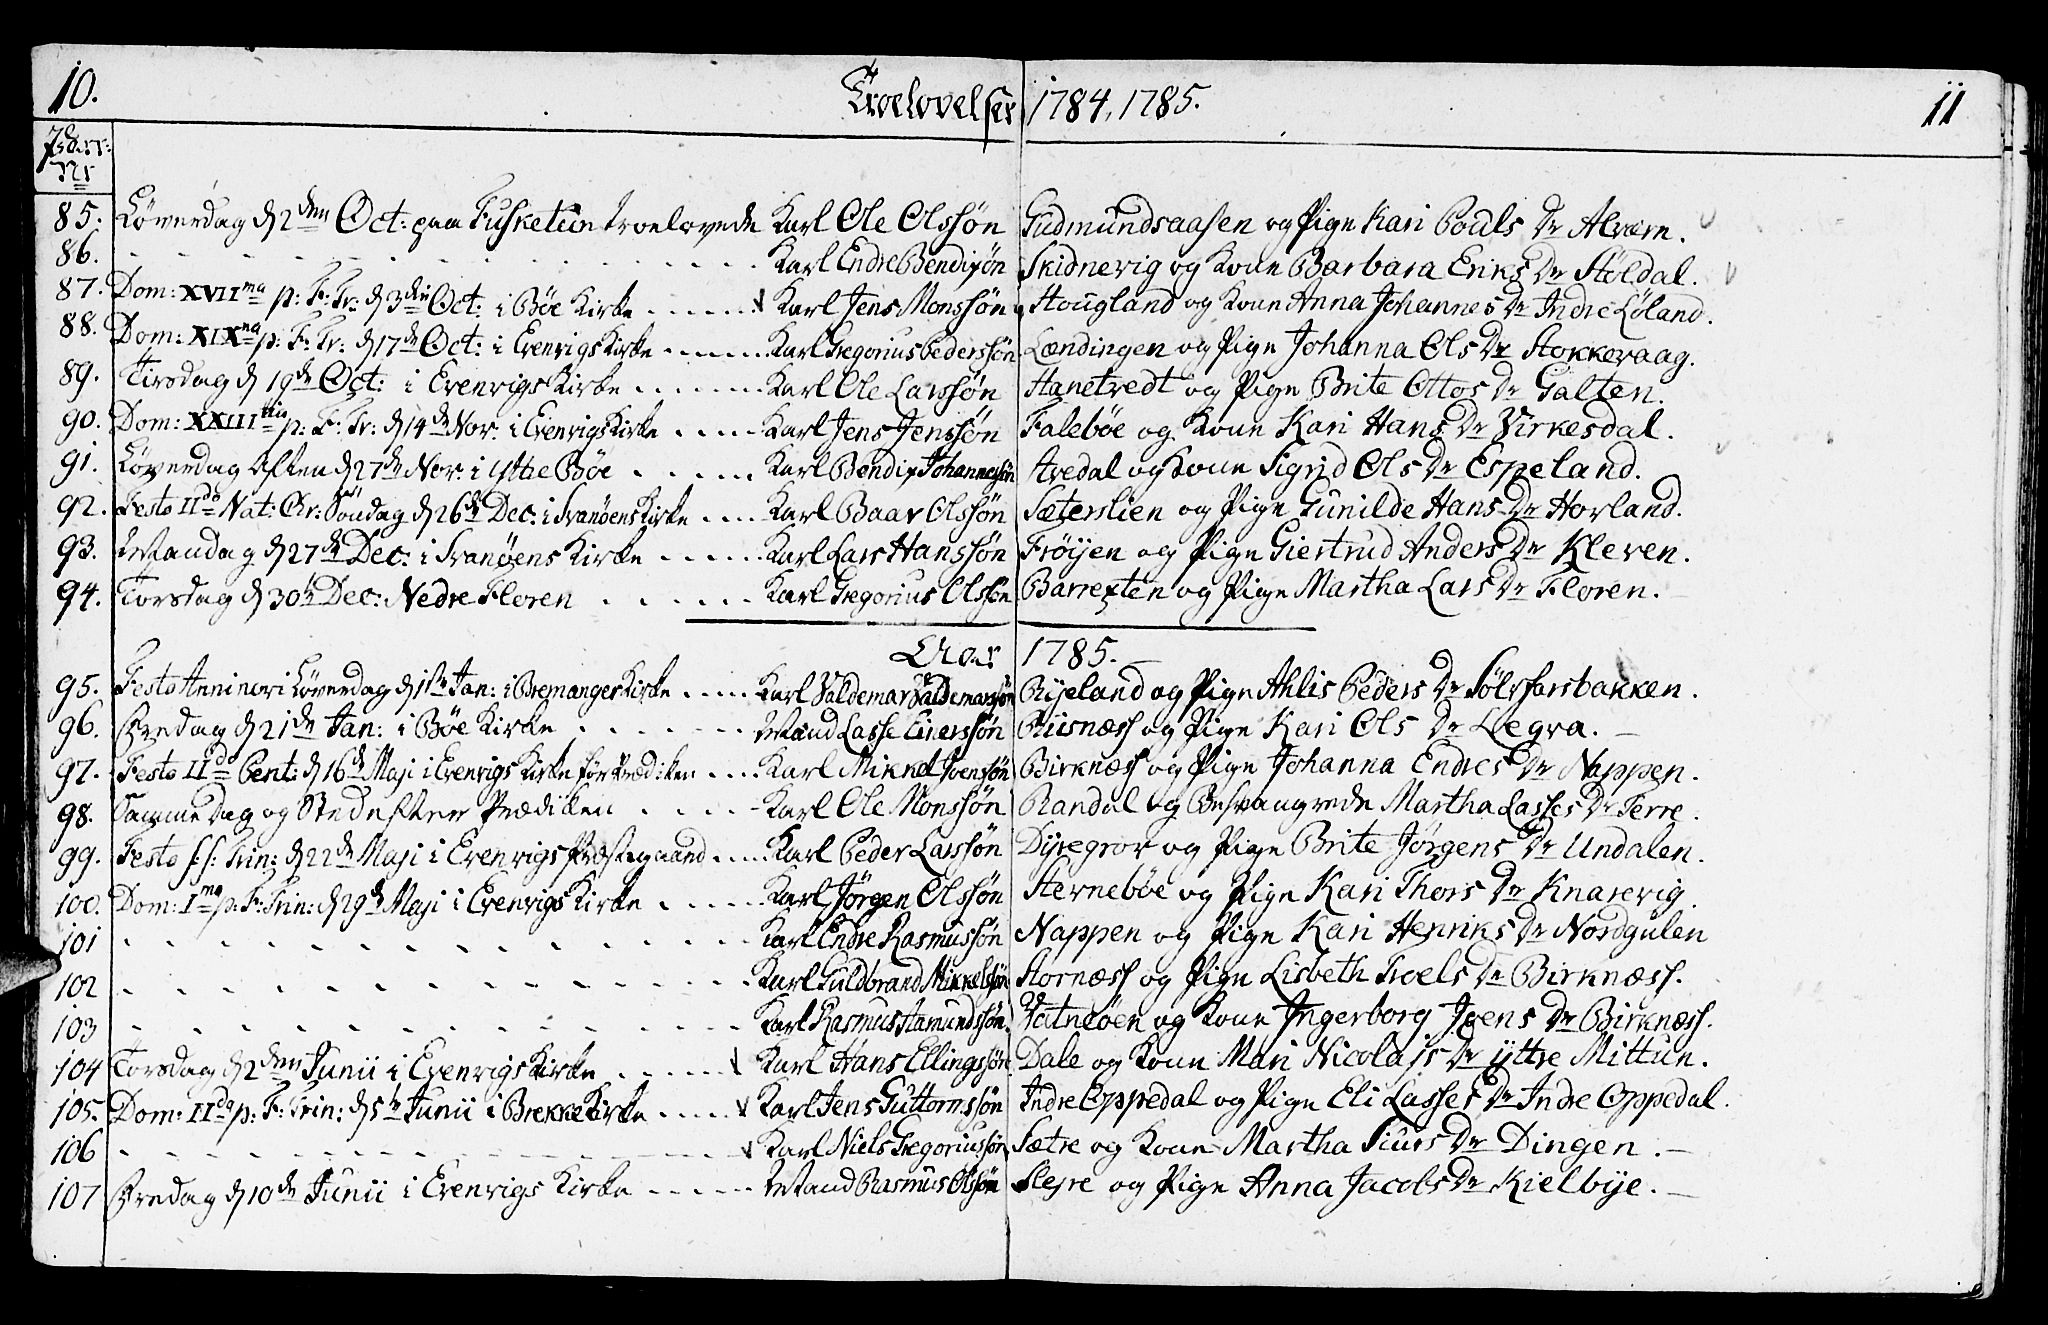 10. Troelovelser 1784, 1785. 11
Nr
85. Løverdag d 2den Oct: paa Husketun troelovede Karl Ole Olssøn Gudmundsaasen og Pige Kari Pouls Dr Alværn.
86. Karl Endre Bendixøn Skidnevig og Kone Barbara Eriks Dr Støldal.
87. Dom: XVIIma p: F: Tr: d 3die Oct: i Bøe Kirke Karl Jens Monssøn Hougland og Kone Anna Johannes Dr Indre Løland.
88. Dom: XIXna p: F: Tr: d 17de Oct: i Evenvigs Kirke Karl Gregorius Pederssøn Lændingen og Pige Johanna Ols Dr Stokkevaag.
89. Tirsdag d 19de Oct: i Evenvigs Kirke Karl Ole Larssøn Hanetvedt og Pige Brite Ottos Dr Galten.
90. Dom: XXIIItia p: F: Tr: d 14de Nov: i Evenvigs Kirke Karl Jens Jenssøn Falebøe og Kone Kari Hans Dr Virkesdal.
91. Løverdag Aften d 27de Nov: i Yttre Bøe Karl Bendix Johannessøn Avedal og Kone Sigrid Ols Dr Espeland.
92. Festo IIdo Nat: Chr: Søndag d 26de Dec: i Svanøens Kirke Karl Baar Olssøn Sæterslien og Pige Gunilde Hans Dr Horland.
93. Mandag d 27de Dec: i Svanøens Kirke Karl Lars Hanssøn Frøijen og Pige Giertrud Anders Dr Kleven.
94. Torsdag d 30te Dec: Nedre Floren Karl Gregorius Olssøn Barrexten og Pige Martha Lars Dr Floren.
Aar 1785.
95. Festo Anni novi Løverdag d 1ste Jan: i Bremanger Kirke Karl Valdemar Valdemarssøn Ryeland og Pige Ahlis Peders Dr Sølvfarsbakken.
96. Fredag d 21de Jan: i Bøe Kirke Mand Lasse Siverssøn Riisnæss og Pige Kari Ols Dr Llegva.
97. Festo IIdo Pent: d 16de Maji i Evenvigs Kirke før Prædiken Karl Mikkel Joenssøn Birknæss og Pige Johanna Endres Dr Nappen.
98. Samme Dag og Sted efter Prædiken Karl Ole Monssøn Randal og Besvangrede Martha Lasses Dr Terre.
99. Festo S: S: Trin: d 22de Maji i Evenvigs Præstegaard Karl Peder Larssøn Dijregrov og Pige Brite Jørgens Dr Undalen.
100. Dom: Ima p: F: Trin: d 29de Maji i Evenvigs Kirke Karl Jørgen Olssøn Sternebøe og Pige Kari Thors Dr Knarevig.
101 Karl Endre Rasmussøn Nappen og Pige Kari Henriks Dr Nordgulen
102 Karl Guldbrand Mikkelssøn Stornæss og Pige Lisbeth Troels Dr Birknæss.
103 Karl Rasmus Aamundssøn Vatneøen og Kone Ingerborg Joens Dr Birknæss.
104 Torsdag d 2den Junii i Evenvigs Kirke Karl Hans Ellingssøn Dale og Kone Mari Nicolajs Dr Yttre Mittun.
105. Dom: IIda p: F: Trin: d 5te Junii i Brekke Kirke Karl Jens Guttormssøn Indre Oppedal og Pige Eli Lasses Dr Indre Oppedal.
106 Karl Niels Gregoriussøn Sætre og Kone Martha Siurs Dr Dingen.
107 Fredag d 10de Junii i Evenvigs Kirke Mand Rasmus Olssøn Slejre og Pige Anna Jacobs Dr Kielbye.